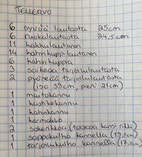 Teuervo
6 syvää lautasta 25cm
6 leikkolautasta 24,5 cm
11 kahvilautanen
14 kahvikuppilautanen
6 kahvikuppia
3 soikeaa tarjoilulautasta
2 pyöreää tarjoilulautasta
(iso 35cm, pieni 21cm)
1 maitokannu
1 kastikekannu
1 kahvikannu
1 kermakko
2 sokerikkoa (toisessa korva rikki)
1 soppakulho kannella (17,5cm)
1 tarjoilukulho kannella (17,5cm)